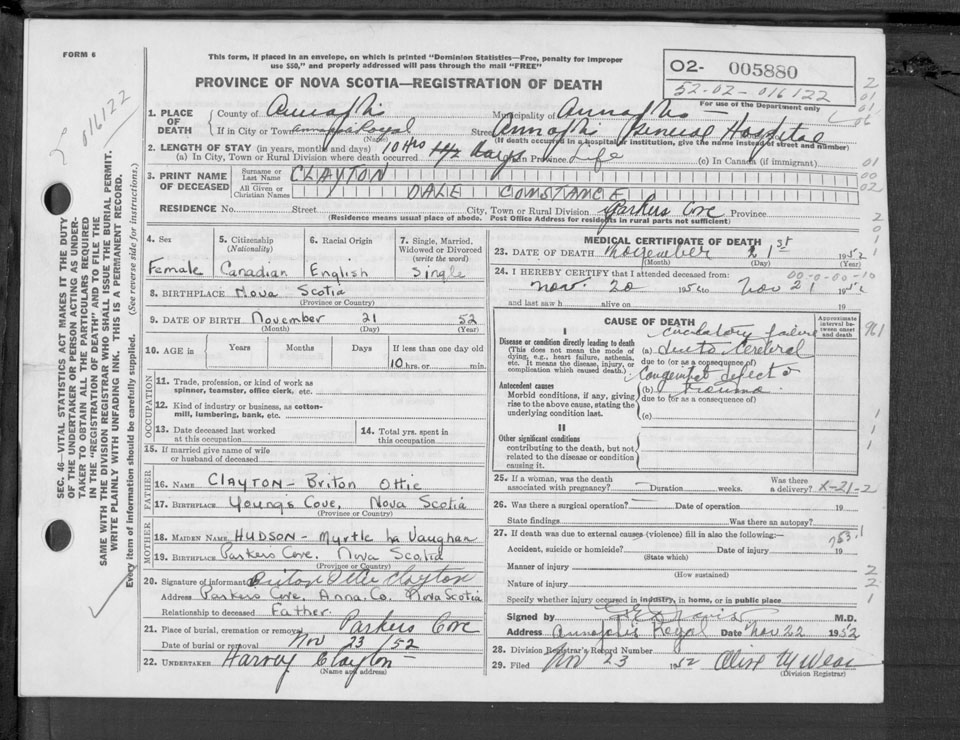 FORM 6
This form, if placed in an envelope, on which is printed "Dominion Statistics—Free, penalty for improper
use $50," and properly addressed will pass through the mail "FREE"
PROVINCE OF NOVA SCOTIA—REGISTRATION OF DEATH
02- 005880
52-02-016122
For use of the Department only
016122
1. PLACE OF DEATH County of Annapolis Municipality of Annapolis
If in City or Town Annapolis Royal Street Annapolis General Hospital
(Name) (If death occurred in a hospital or institution, give the name instead of street and number)
2. LENGTH OF STAY (in years, months and days)
(a) In City, Town or Rural Division where death occurred 10 Hrs Days In Province Life (c) In Canada (if immigrant)
3. PRINT NAME OF DECEASED
Surname or Last Name CLAYTON
All Given or Christian Names DALE CONSTANCE
RESIDENCE No. Street City, Town or Rural Division Parkers Cove Province
(Residence means usual place of abode. Post Office Address for residents in rural parts not sufficient)
4. Sex
Female
5. Citizenship (Nationality)
Canadian
6. Racial Origin
English
7. Single, Married, Widowed or Divorced (write the word)
Single
8. BIRTHPLACE Nova Scotia
(Province or Country)
9. DATE OF BIRTH November 21 52
(Month) (Day) (Year)
10. AGE in Years Months Days If less than one day old
10 hrs. or min.
OCCUPATION
11. Trade, profession, or kind of work as
spinner, teamster, office clerk, etc.
12. Kind of industry or business, as cotton-
mill, lumbering, bank, etc.
13. Date deceased last worked
at this occupation
14. Total yrs. spent in
this occupation
15. If married give name of wife
or husband of deceased
FATHER
16. NAME CLAYTON - Briton Ottie
17. BIRTHPLACE Young's Cove, Nova Scotia
(Province or Country)
MOTHER
18. MAIDEN NAME HUDSON - Myrtle La Vaughan
19. BIRTHPLACE Parkers Cove, Nova Scotia
(Province or Country)
20. Signature of informant Briton Ottie Clayton
Address Parkers Cove, Anna. Co. Nova Scotia
Relationship to deceased Father
21. Place of burial, cremation or removal Parkers Cove
Date of burial or removal Nov 23 /52
22. UNDERTAKER Harvey Clayton
(Name and address)
MEDICAL CERTIFICATE OF DEATH
23. DATE OF DEATH November 21st 1952
(Month) (Day) (Year)
24. I HEREBY CERTIFY that I attended deceased from:
00-0-00-10
Nov. 20 1952 to Nov 21 1952
and last saw h alive on 19
CAUSE OF DEATH
Approximate interval between onset and death
I
Disease or condition directly leading to death
(This does not mean the mode of
dying, e.g., heart failure, asthenia,
etc. It means the disease, injury, or
complication which caused death.)
Circulatory failure
(a) due to Cerebral
due to (or as a consequence of)
Antecedent causes
Morbid conditions, if any, giving
rise to the above cause, stating the
underlying condition last.
Congenital defect or
(b) trauma
due to (or as a consequence of)
(c)
II
Other significant conditions
contributing to the death, but not
related to the disease or condition
causing it.
25. If a woman, was the death
associated with pregnancy? Duration weeks. Was there
a delivery? X-21-2
26. Was there a surgical operation? Date of operation 19
State findings Was there an autopsy?
27. If death was due to external causes (violence) fill in also the following:—
Accident, suicide or homicide? Date of injury 19
(State which)
Manner of injury
(How sustained)
Nature of injury
Specify whether injury occurred in industry, in home, or in public place
Signed by M.D.
Address Annapolis Royal Date Nov 22 1952
28. Division Registrar's Record Number
29. Filed Nov 23 1952
(Division Registrar)
SEC. 46—VITAL STATISTICS ACT MAKES IT THE DUTY
OF THE UNDERTAKER OR PERSON ACTING AS UNDER-
TAKER TO OBTAIN ALL THE PARTICULARS REQUIRED
IN THE "REGISTRATION OF DEATH" AND TO FILE THE
SAME WITH THE DIVISION REGISTRAR WHO SHALL ISSUE THE BURIAL PERMIT.
WRITE PLAINLY WITH UNFADING INK. THIS IS A PERMANENT RECORD.
Every item of information should be carefully supplied. (See reverse side for instructions.)